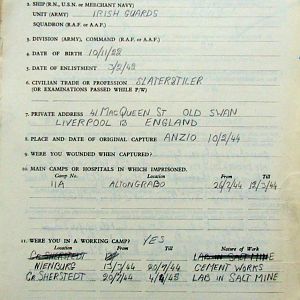 2. SHIP (R.N., U.S.N. OR MERCHANT NAVY)
UNIT (ARMY) IRISH GUARDS
SQUADRON (R.A.F. OR A.A.F.)
3. DIVISION (ARMY), COMMAND (R.A.F. OR A.A.F.)
4. DATE OF BIRTH 10/11/22
5. DATE OF ENLISTMENT 3/2/42
6. CIVILIAN TRADE OR PROFESSION SLATER&TILER
(OR EXAMINATIONS PASSED WHILE P/W)
7. PRIVATE ADDRESS 41 MACQUEEN ST OLD SWAN
LIVERPOOL 13 ENGLAND
8. PLACE AND DATE OF ORIGINAL CAPTURE ANZIO 10/2/44
9. WERE YOU WOUNDED WHEN CAPTURED?
10. MAIN CAMPS OR HOSPITALS IN WHICH IMPRISONED.
Camp No. Location From Till
11A ALTONGRABO 26/2/44 12/3/44
11. WERE YOU IN A WORKING CAMP? YES
Location From Till Nature of Work
LAB IN SALT MINE
NIENBURG 13/3/44 20/7/44 CEMENT WORKS
SHERSTEDT 20/7/44 LAB IN SALT MINE